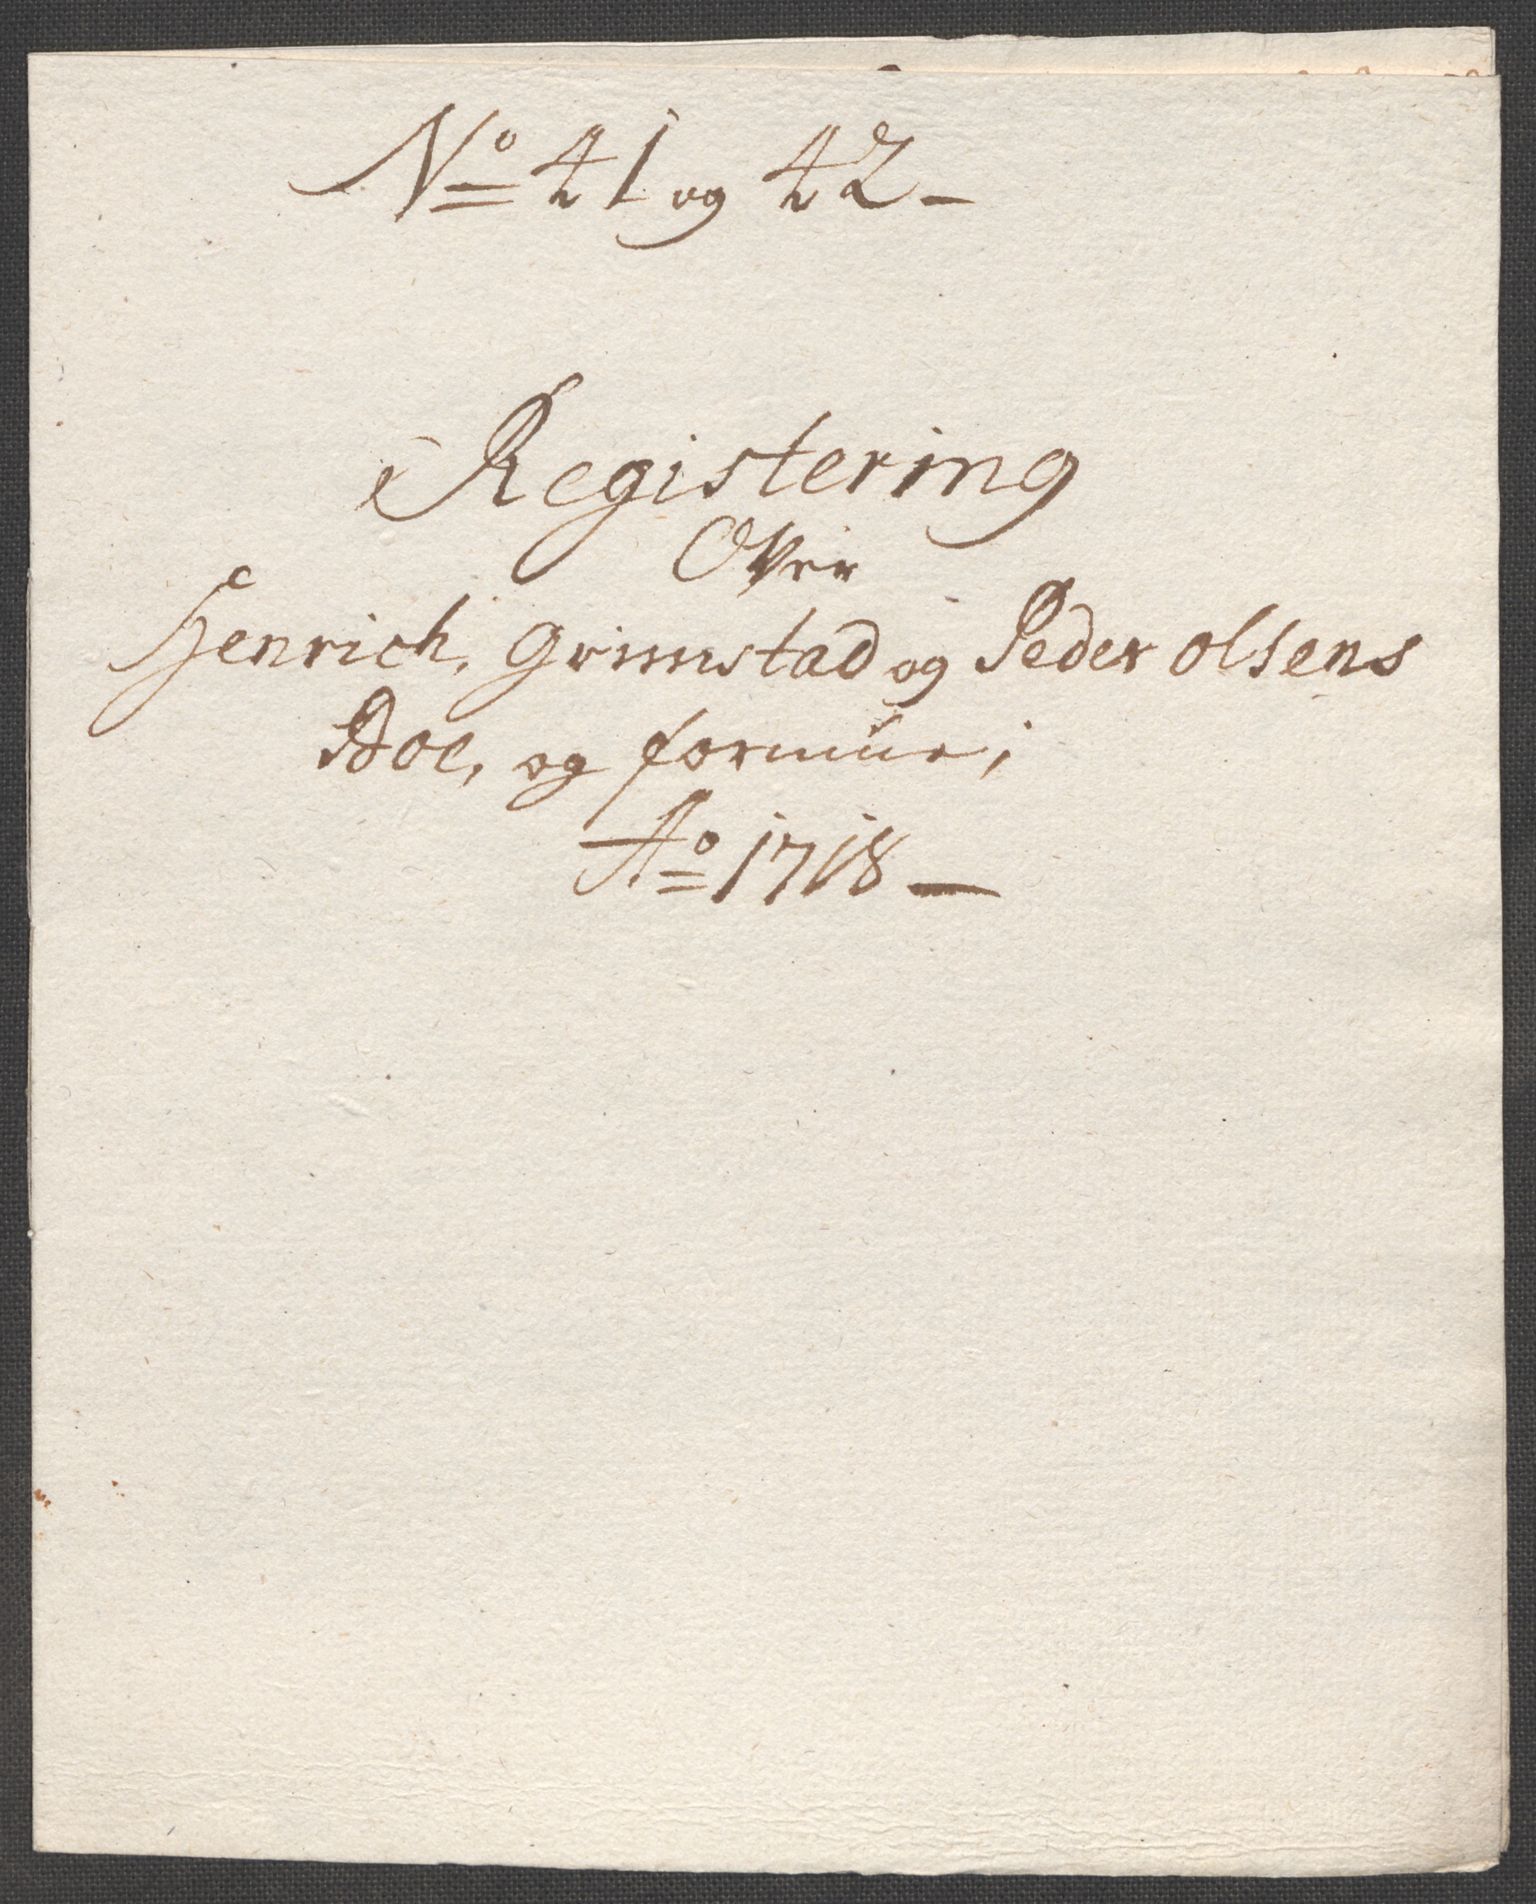 No 41 og 42 –
Registering
Over
Henrich, Grimstad og Peder olsens
Boe, og formüe;
Ao 1718 —